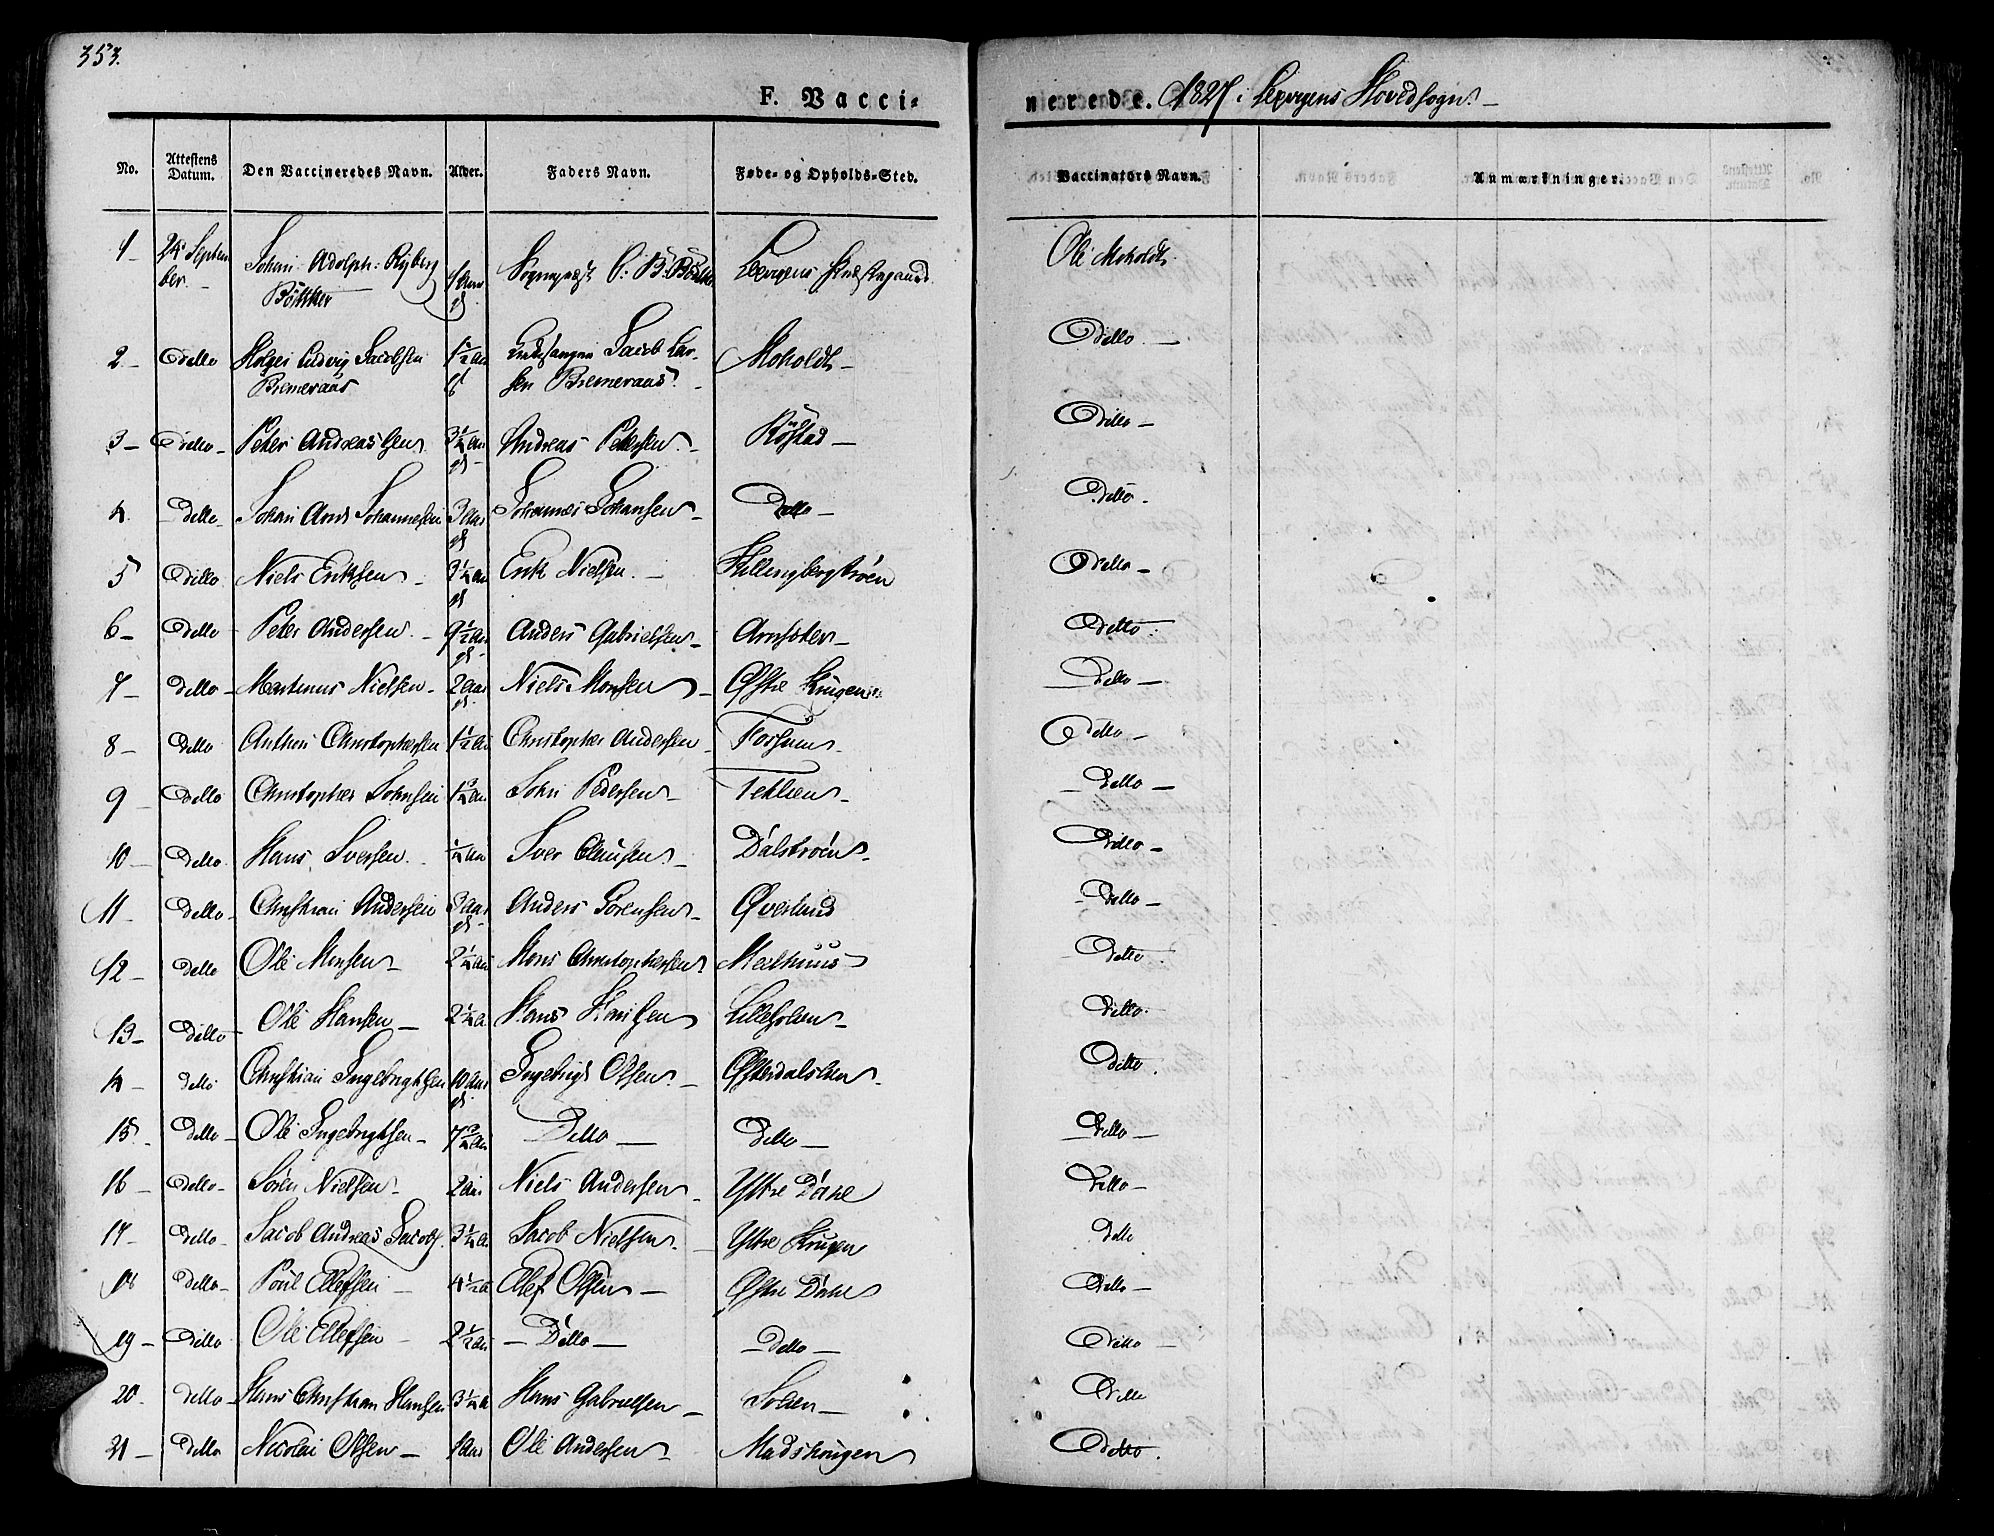 353.
F. Vacci-
nerende. 1827 i Lexvigens Hovedsogn.
No. Attestens Datum. Den Vaccineredes Navn. Alder. Faders Navn. Føde- og Opholds-Sted. Vaccinators Navn. Anmærkninger.
1 - 24 Septem Johan Adolph Ryberg 1 Aar Lexvigens Præstegaard Ole Moholdt.
ber - Böttker gl
2. Ditto Holger Ludvig Jacobsen 1½ Aar Jacob Lar- Moholdt - Ditto. -
Bremeraas gl sen Bremeraas. -
3 - Ditto - Peter Andreassen 3¼ Aar gl Andreas Petersen - Røstad - Ditto -
4. Ditto - Johan Arnt Johannesen 3 Aar gl Johannes Johansen - Ditto - Ditto -
5 Ditto Niels Eriksen - 3¼ Aar gl Erik Nielsen - Hellingbergtrøen Ditto -
6 - Ditto Peter Andersen - 9½ Aar gl Anders Gabrielsen - Ditto.
7 - Ditto - Martinus Nielsen - 2 Aar gl. Niels Monsen - Østre Krügen Ditto -
8 - Ditto Anthon Christophersen 1½ Aar Christopher Andersen - Fossum - Ditto -
9 - Ditto Christopher Johnsen 1¾ Aar John Pedersen - - Ditto -
10 - Ditto. Hans Iversen. ¼ Aar Iver Clausen - Dalstrøen - Ditto -
11 - Ditto - Christian Andersen 3 Aar gl. Anders Sørensen - Øverland - Ditto -
12 - Ditto Ole Monsen - 2¼ Aar Mons Christophersen Melhuus - Ditto.
13 - Ditto - Ole Hansen - 2¼ A. Hans Hansen Lillesolem - Ditto.
14 - Ditto Christian Ingebrigtsen 10 Aar gl. Ingebrigt Olsen - Østerdalslien - Ditto.
15. Ditto - Ole Ingebrigtsen - 7¾ Aar Ditto - Ditto - Ditto -
16 - Ditto - Søren Nielsen - 2 Aar Niels Andersen - Yttre Dahle Ditto -
17 - Ditto - Jacob Andreas Jacobs. 3¼ A. Jacob Nielsen - Yttre Krügen Ditto
18 - Ditto - Poul Ellefsen - 4½ A Ellef Olsen - Østre Dahle Ditto -
19 - Ditto Ole Ellefsen - 2½ Aar - Ditto - - Ditto - Ditto
20. Ditto - Hans Christian Hansen 3¼ A Hans Gabrielsen - Solem - Ditto
21 - Ditto Nicolai Olsen - 1 Aar Ole Andersen - Madskrügen Ditto.